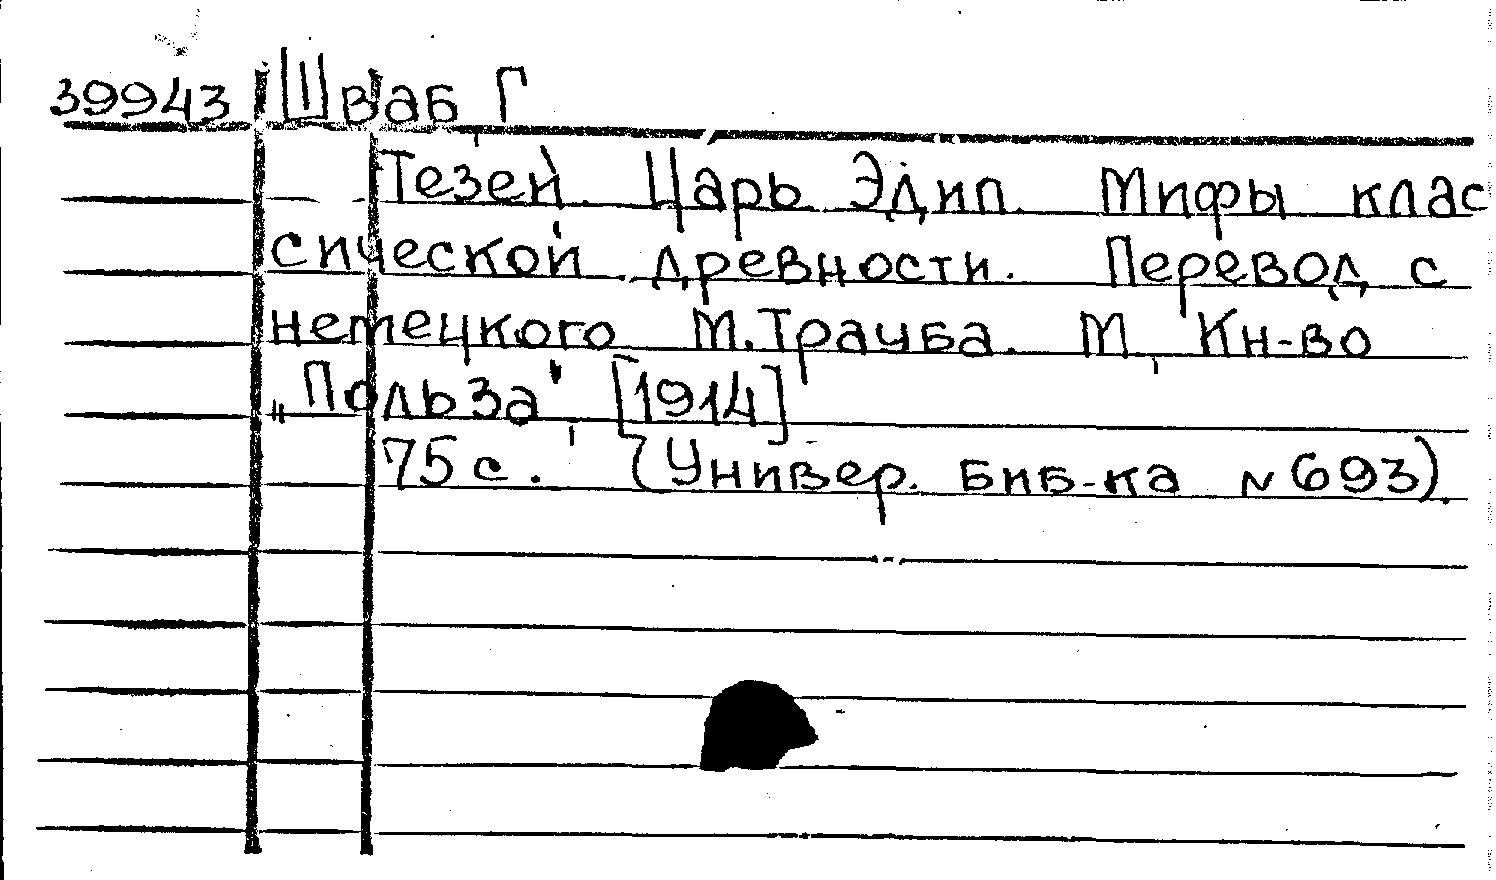 39943 Шваб Г
Тезей. Царь Эдип. Мифы клас
сической древности. Перевод с
немецкого М.Трауба. М, Кн-во
„Польза", [1914]
75 с. (Универ. биб-ка N 693).